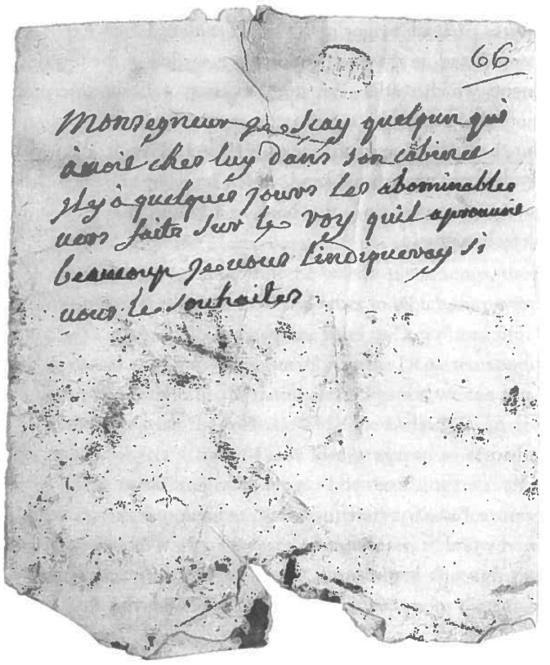 66
Monsegneur je scay quelqun qui
avoit ches luy dans son cabinet
il y à quelques jours les abominables
vers faits sur le roy quil aprouvoit
beaucoup je vous l'indiqueray si
vous le souhaites